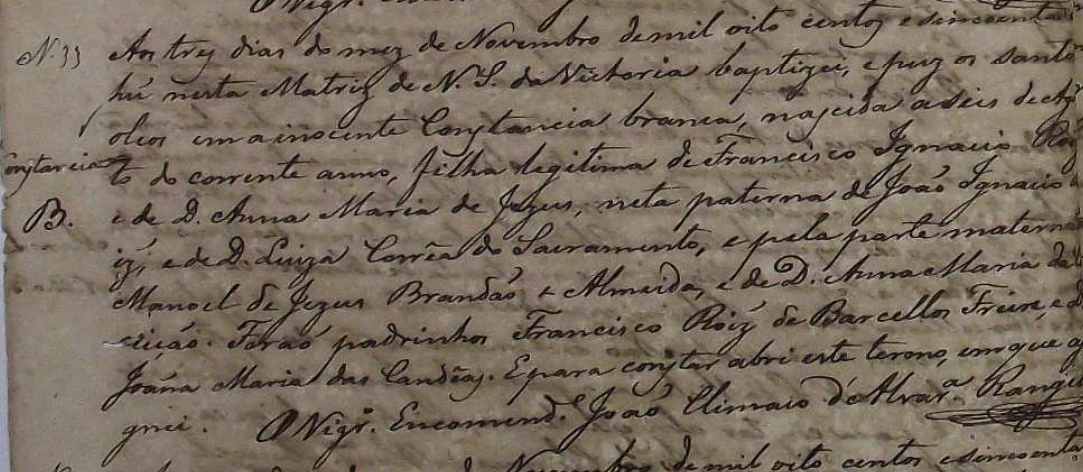 O Vigr.
N. 33 Aos trez dias do mez de Novembro de mil oito centos e sincoenta
hú nesta Matriz de N. S. da Victoria baptizei, e puz os santo
oleos em a inocente Constancia branca, nascida a seis de Ag
Constancia to do corrente anno, filha legitima de Francisco Ignacio Roi
B. e de D. Anna Maria de Jezus, neta paterna de João Ignacio
iz, e de D. Luiza Corrêa do Sacramento, e pela parte matern
Manoel de Jezus Brandão e Almeida, e de D. Anna Maria da
ceição. Forão padrinhos Francisco Roiz de Barcellos Freire, e D
Joana Maria das Candêas. E para constar abri este termo, em que as
gnei. O Vigr.º Encomend.º João Climaco d'Alvar.ª Range
Novembro de mil oito centos e sincoenta